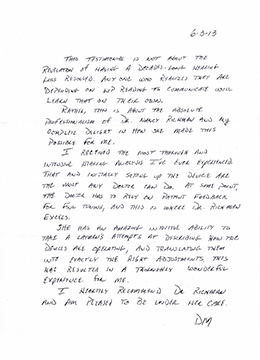 6-3-13
This testimonial is not about the
revelation of having a decades-long hearing
loss resolved. Anyone who realizes they are
depending on lip reading to communicate will
learn that on their own.
Rather, this is about the absolute
professionalism of Dr. Nancy Richman and my
complete delight in how she made this
possible for me.
I received the most thorough and
intensive hearing analysis I've ever experienced
that and initially setting up the device are
the most any doctor can do. At some point,
the doctor has to rely on patient feedback
for fine tuning, and this is where Dr. Richman
excels.
She has an amazing intuitive ability to
take a layman's attempts at describing how the
devices are operating, and translating them
into exactly the right adjustments. This
has resulted in a thoroughly wonderful
experience for me.
I heartily recommend Dr. Richman
and am pleased to be under her care.
DM